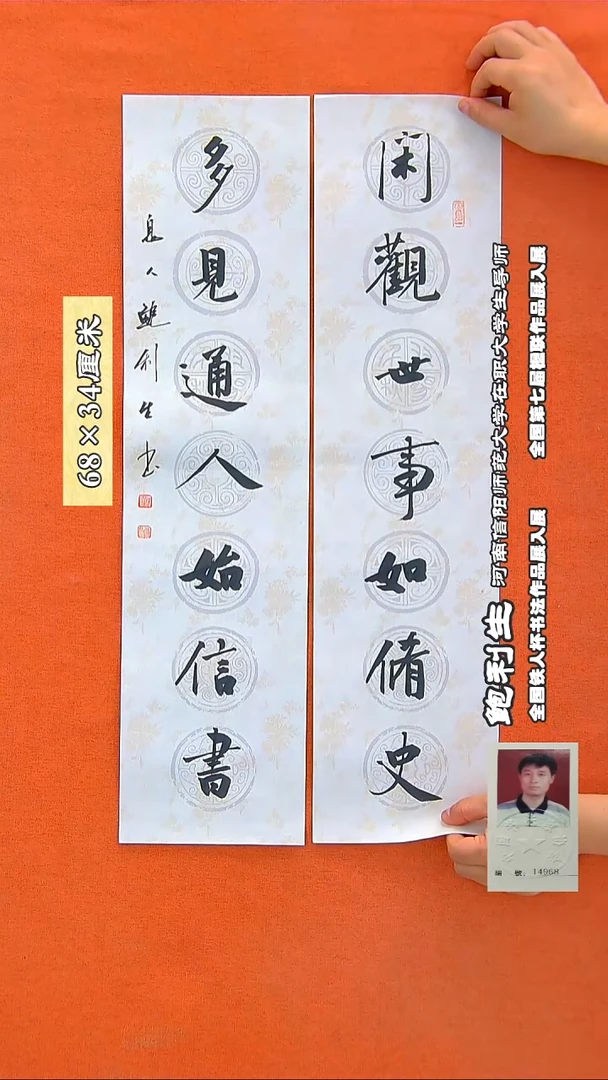 閑觀世事如脩史
多見通人始信書
息人鮑利生书
68×34厘米
鲍利生 河南信阳师范大学在职大学生导师
全国铁人杯书法作品展入展 全国第七届楹联作品展入展
編 號: 14968